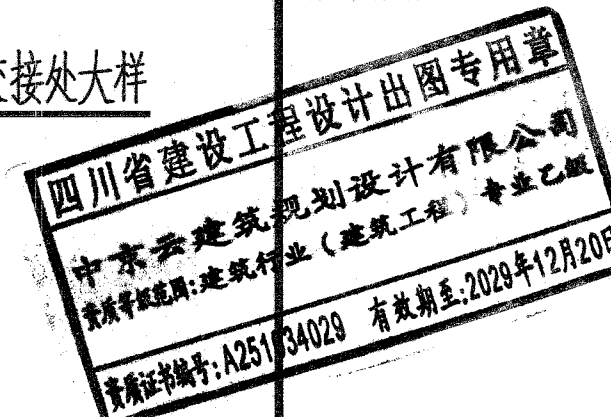 接处大样
四川省建设工程设计出图专用章
中京云建筑规划设计有限公司
资质等级范围:建筑行业(建筑工程)专业乙级
资质证书编号:A251034029 有效期至:2029年12月20日